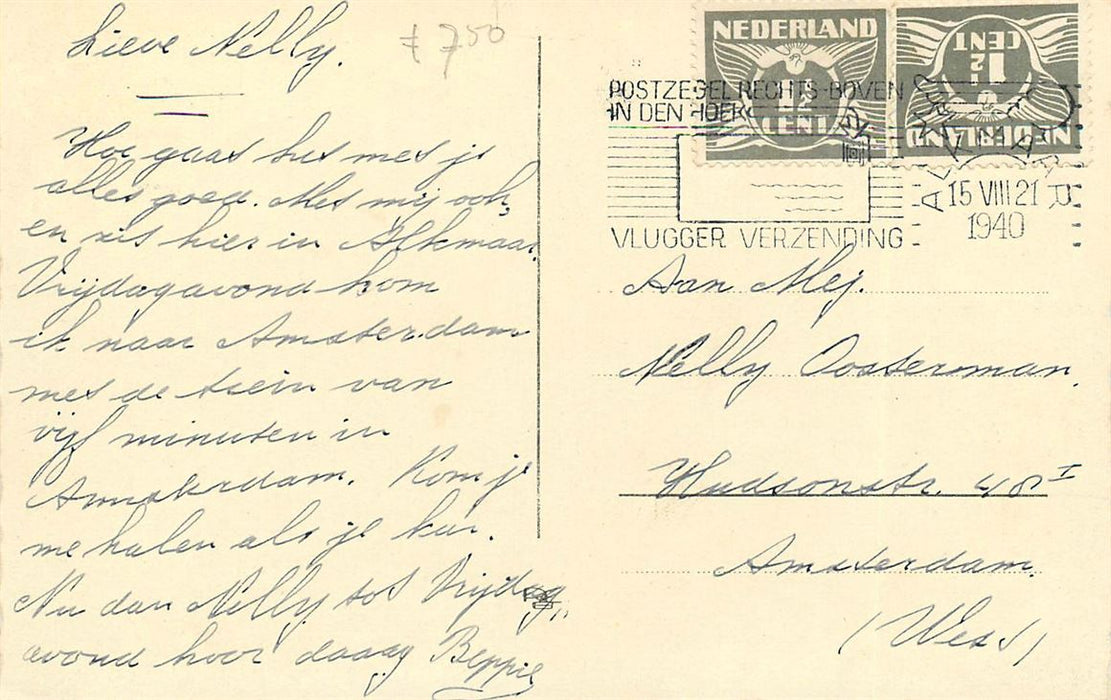 Lieve Nelly.
f 7 50
Hoe gaat het met je
alles goed. Met mij ook,
en zit hier in Alkmaar.
Vrijdagavond kom
ik naar Amsterdam
met de trein van
vijf minuten in
Amsterdam. Kom je
me halen als je kan.
Nu dan Nelly tot Vrijdag,,
avond hoor daaag Beppie
NEDERLAND
1½
CENT
NEDERLAND
1½
CENT
POSTZEGEL RECHTS-BOVEN
IN DEN HOEK
VLUGGER VERZENDING
ALKMAAR
15 VIII 21
1940
Aan Mej.
Nelly Oosterman.
Hudsonstr. I
Amsterdam.
(West)